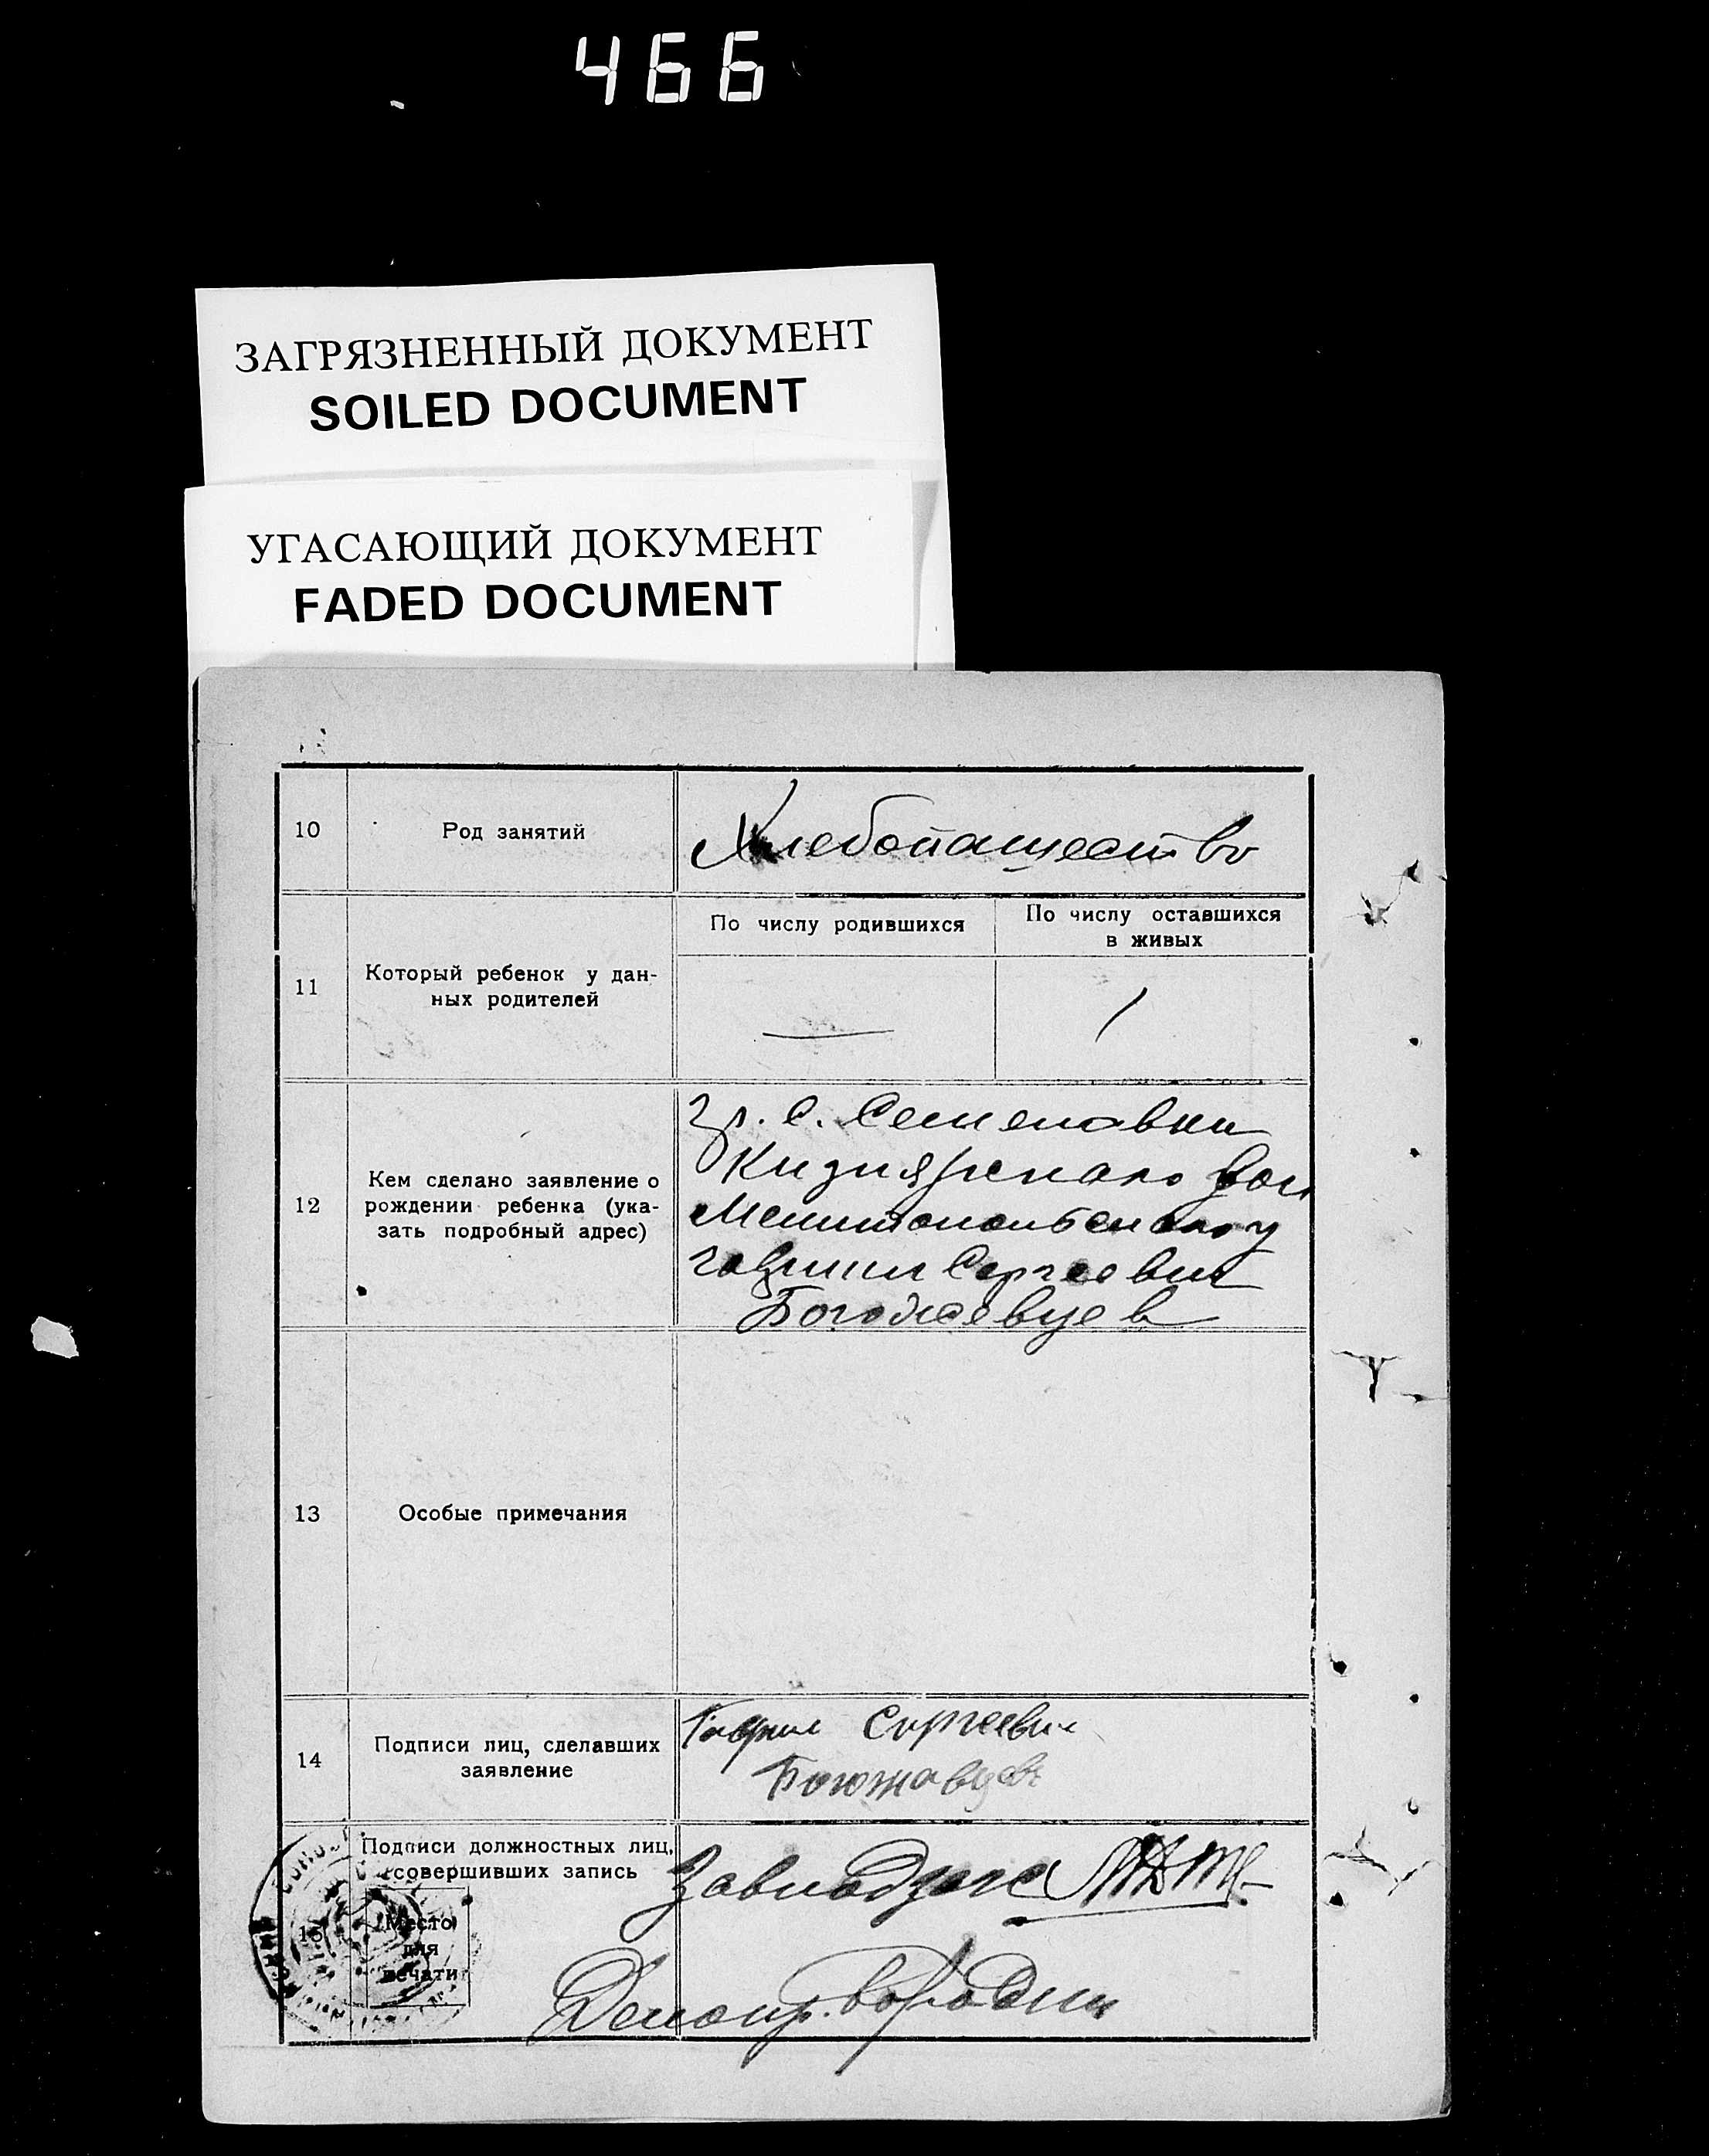 466
ЗАГРЯЗНЕННЫЙ ДОКУМЕНТ
SOILED DOCUMENT
УГАСАЮЩИЙ ДОКУМЕНТ
FADED DOCUMENT
10
Род занятий
Хлебопашество
11
Который ребенок у дан-
ных родителей
По числу родившихся
По числу оставшихся
в живых
—
1
12
Кем сделано заявление о
рождении ребенка (ука-
зать подробный адрес)
гр. с. Семеновки
Кизиярского вол
Мелитопольского у
Гавриил Сергеевич
Богожевцев
13
Особые примечания
14
Подписи лиц, сделавших
заявление
Гаврил Сергеевич
15
Подписи должностных лиц,
совершивших запись
Место
для
печати
Завподзагс
Делопр. Бородин